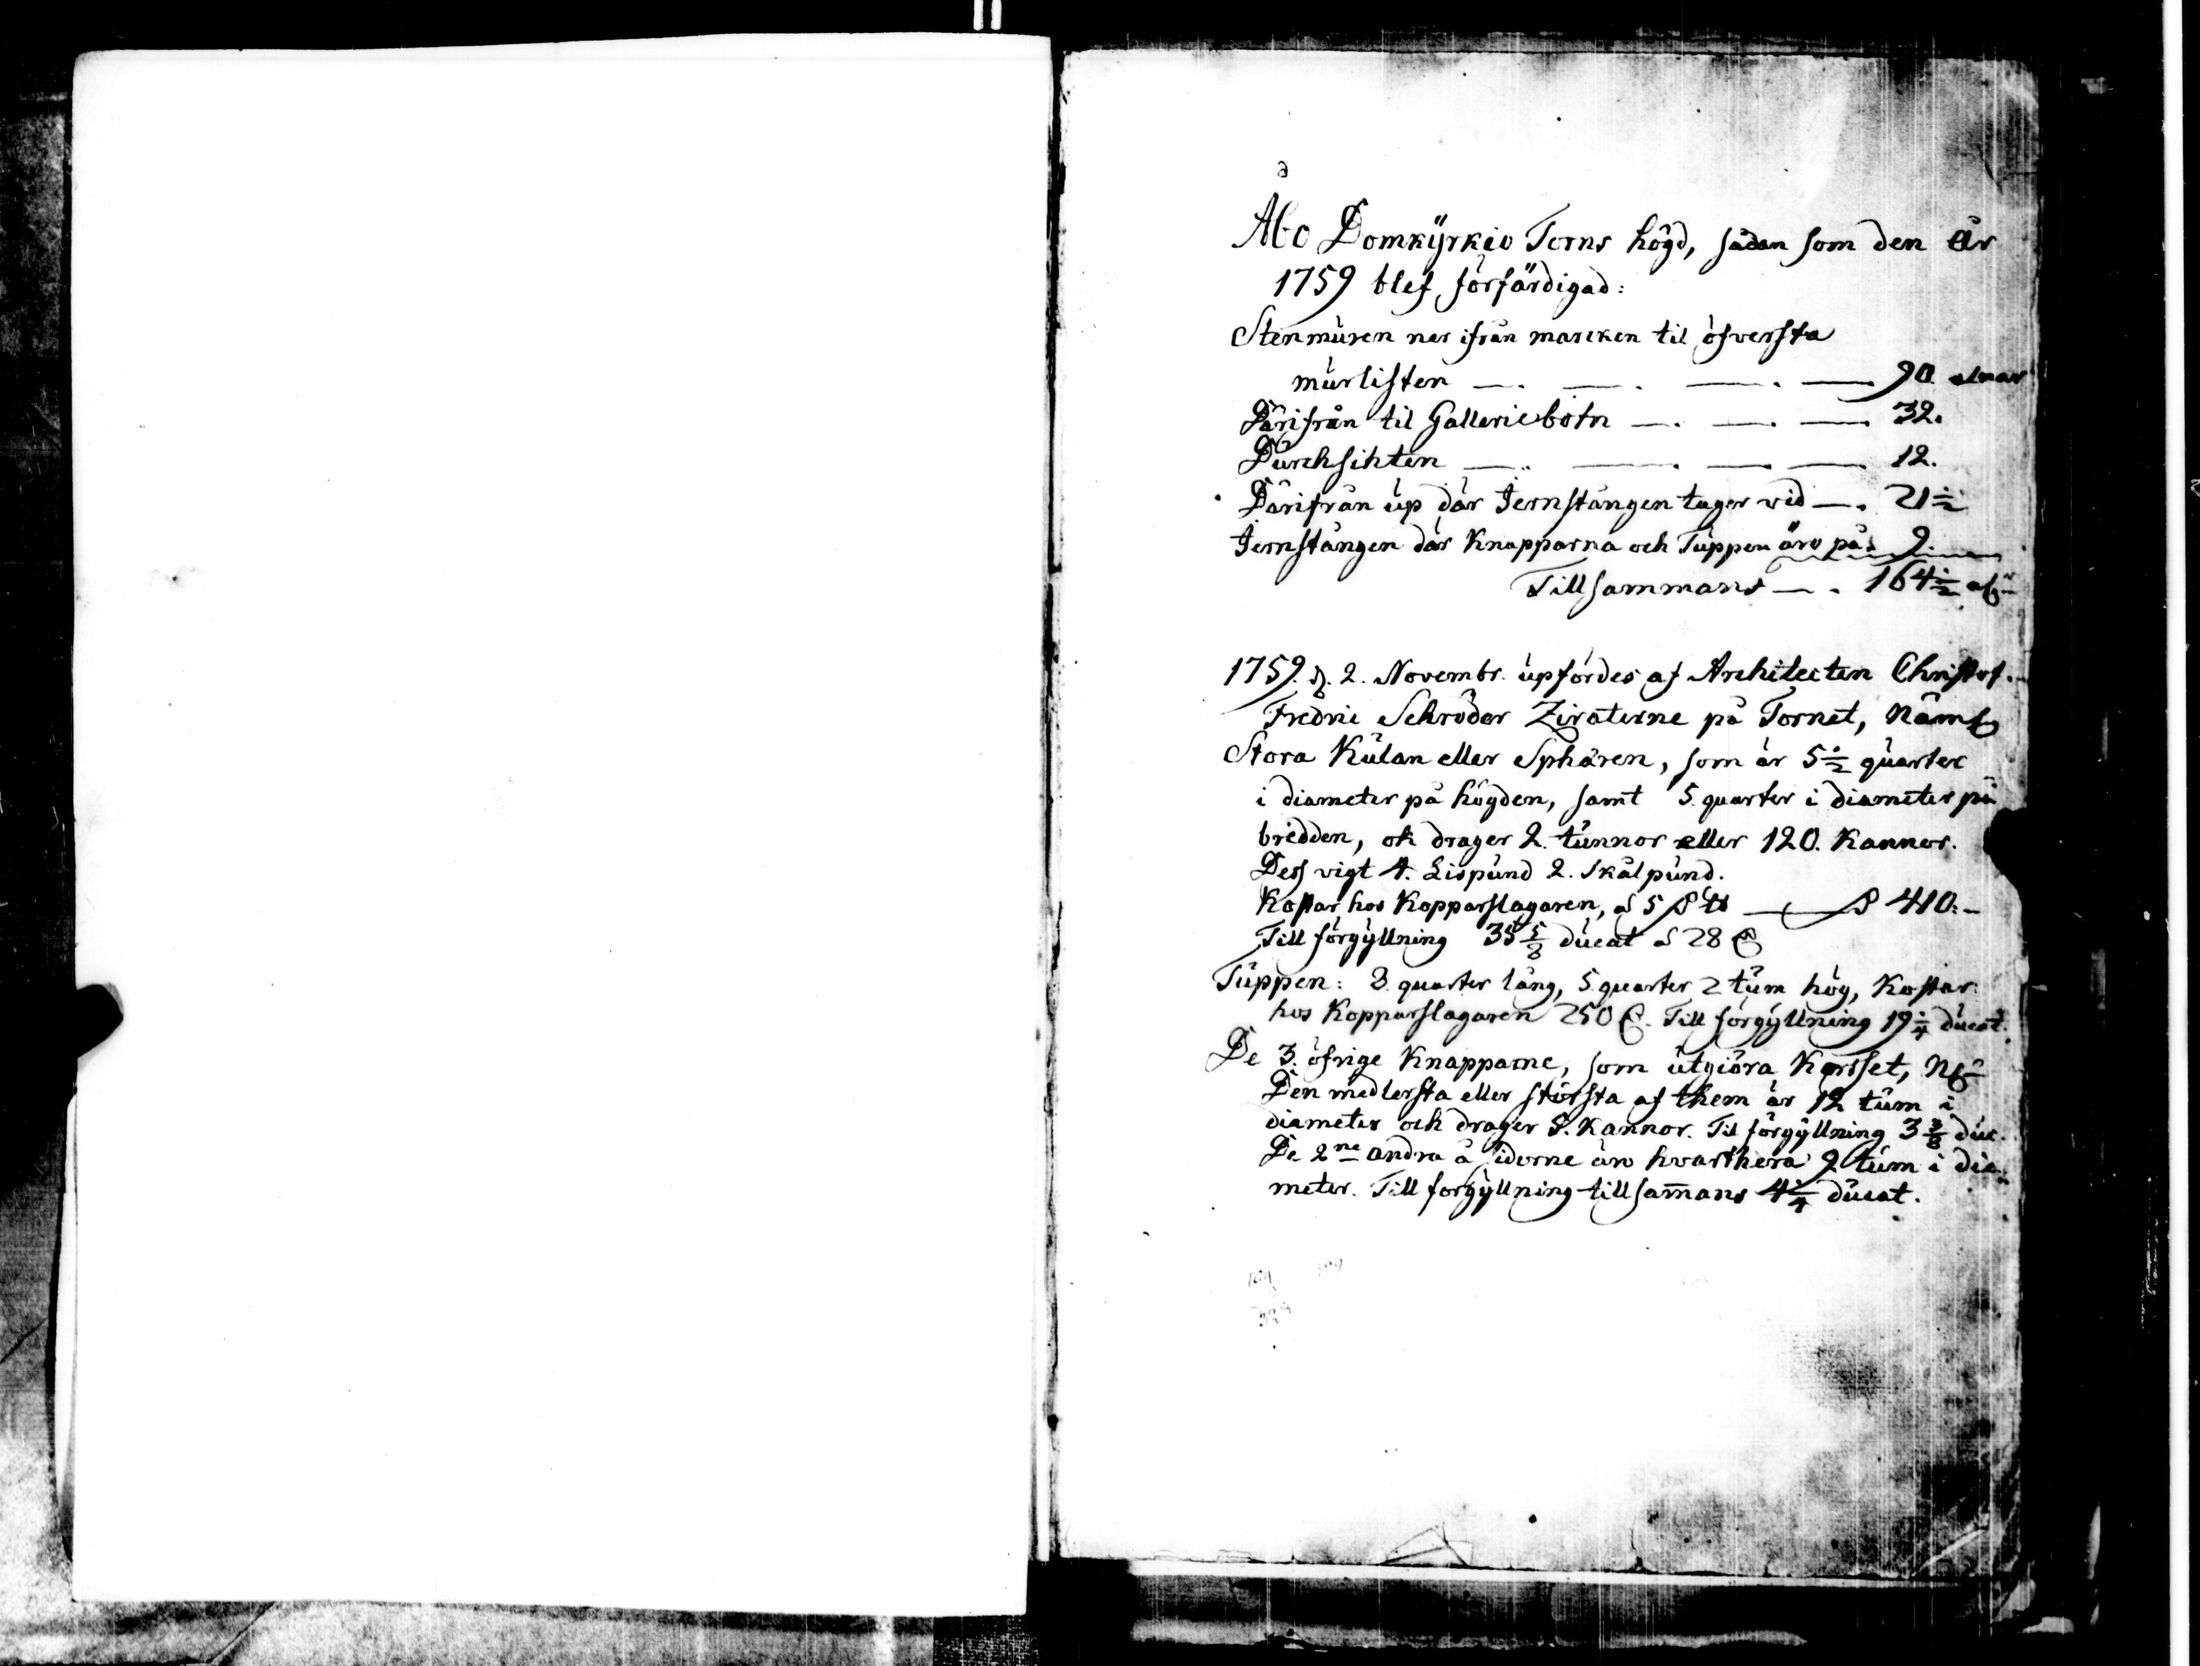 Åbo Domkyrkio Torns högd, sådan som den År
1759 blef förfärdigad:
Stenmuren ner ifrån marcken til öfversta
murlisten — . — . — . — 90. alnar
Därifrån til Galleriebotn — . — . — 32.
Durchsihten — . — . — . — 12.
Därifrån up där Jernstången tager vid — . 21½
Jernstången där Knapparna och Tuppen äro på. 9.
Tillsammans — . 164½ al:r
1759. d. 2. Novembr. upfördes af Architecten Christof.
Fredric Schröder Ziraterne på Tornet, Näml:
Stora Kulan eller Sphären, som är 5½ quarter
i diameter på högden, samt 5. quarter i diameter på
bredden, ok drager 2. tunnor eller 120. Kannor.
Dess vigt 4. Lispund 2. Skålpund.
Kostar hos Kopparslagaren, a 5 — 410:-
Till förgyllning 35 5/8 ducat a 28
Tuppen: 3. quarter lång, 5. quarter 2 tum hög, Kostar
hos Kopparslagaren 250. Till förgyllning 19¼ ducat.
De 3. öfrige Knapparne, som utgiöra Korsset, Nl:
Den medlersta eller största af them är 12 tum i
diameter och drager 8. Kannor. Til förgyllning 3 3/8 duc.
De 2ne andra å sidorne äro hvarthera 9 tum i dia-
meter. Till förgyllning tillsam̄ans 4¼ ducat.